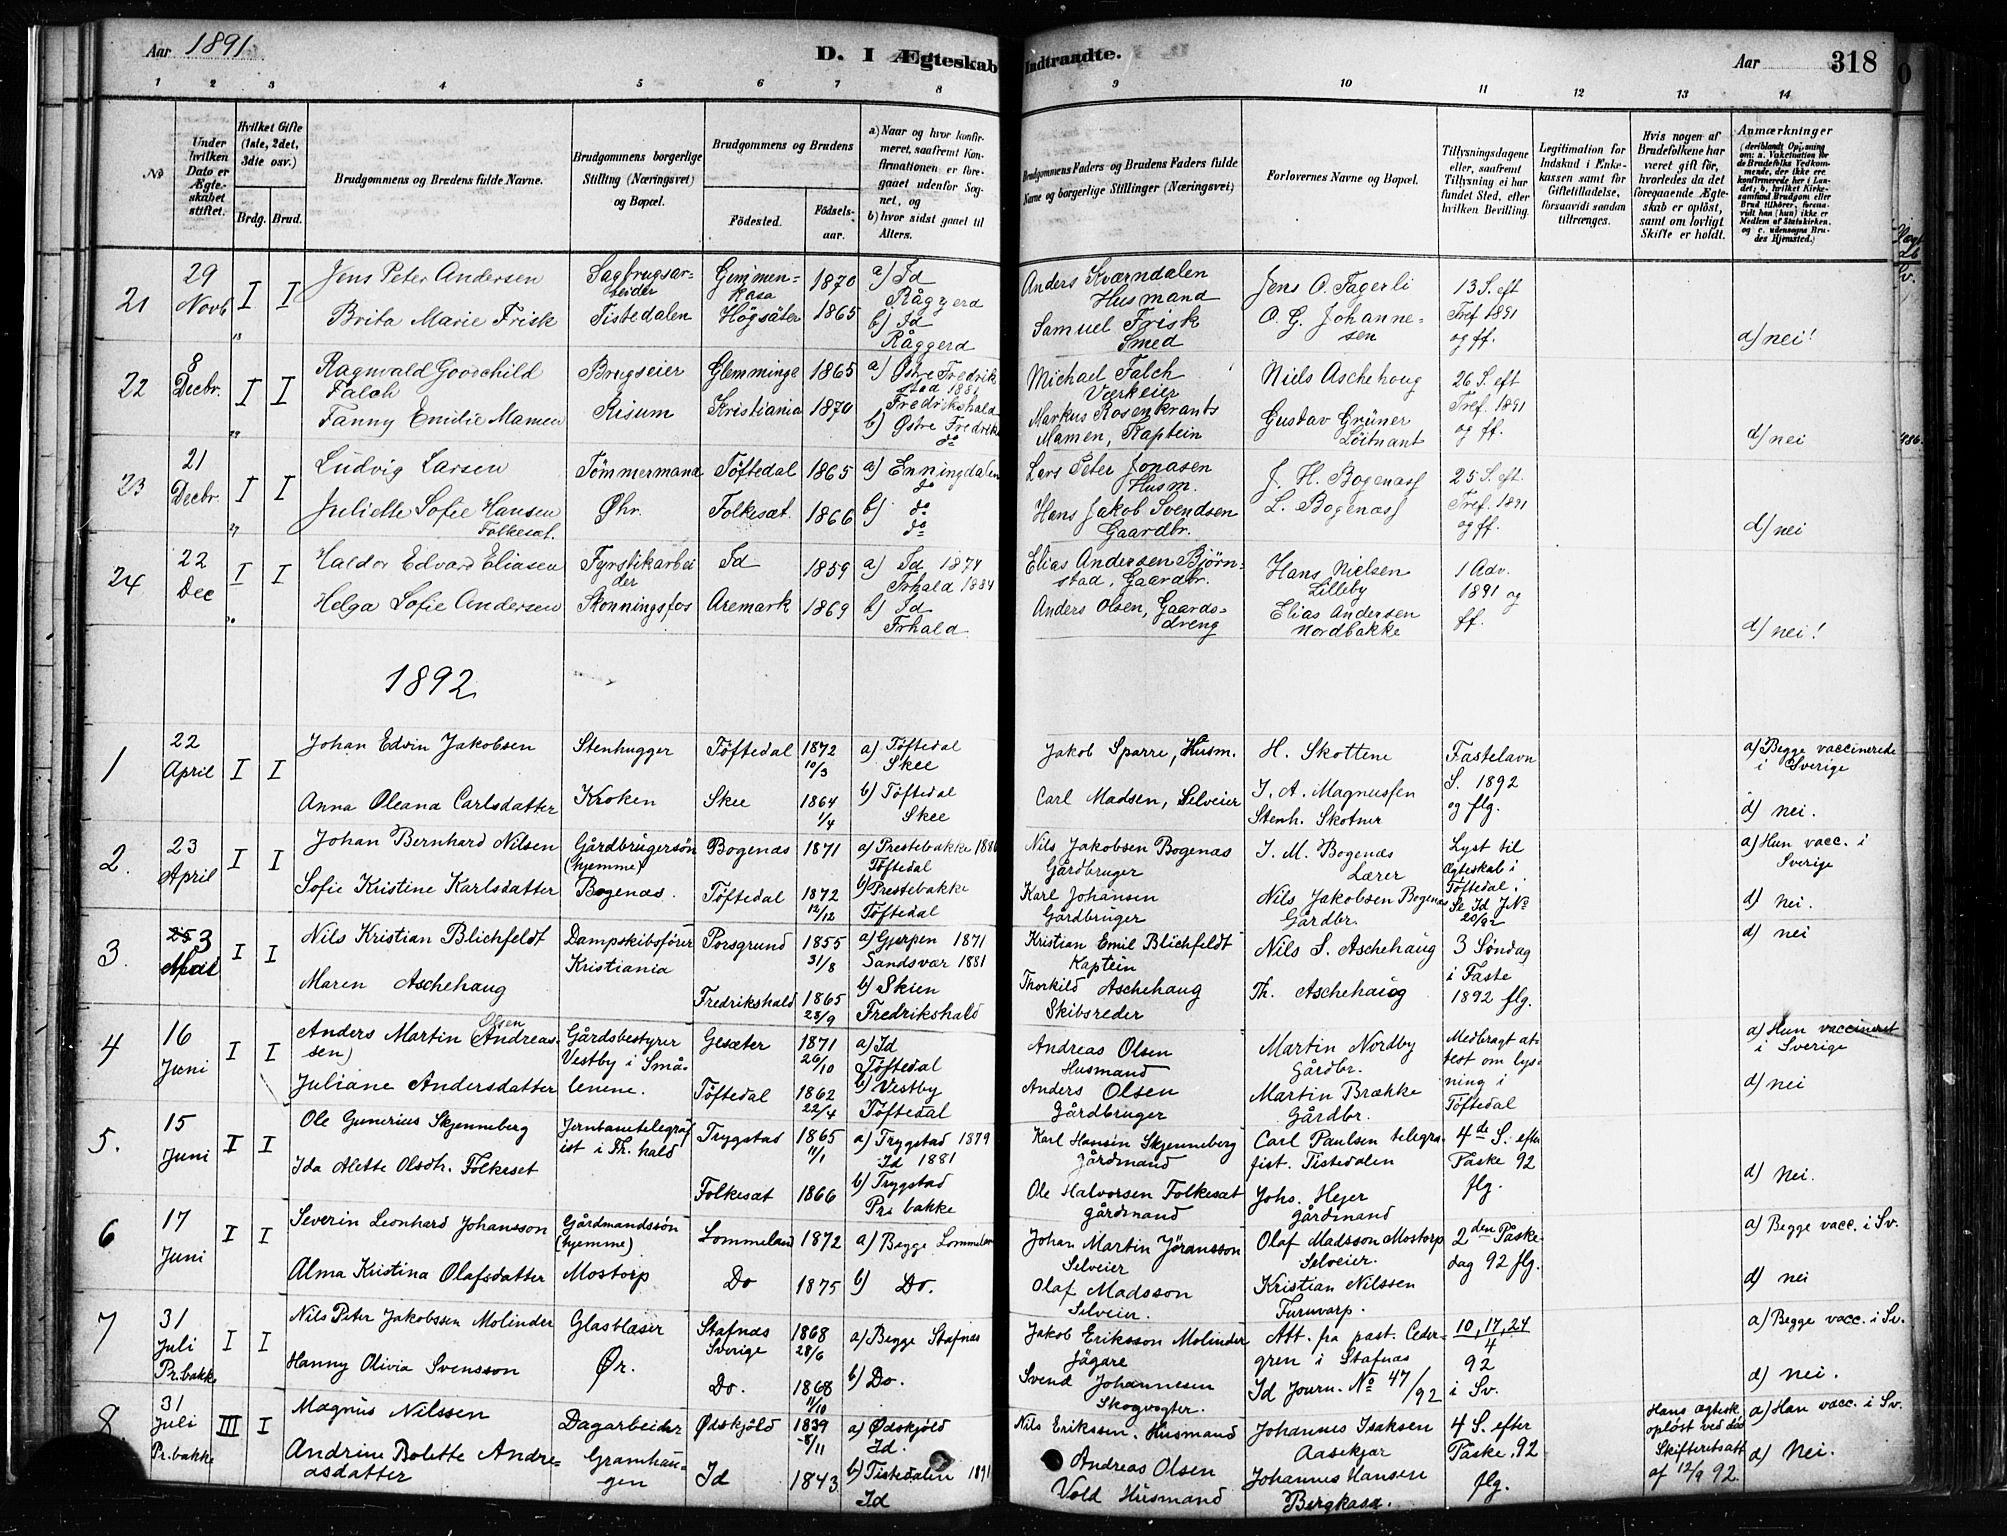 Aar 1891
D. I Ægteskab Indtraadte.
Aar 318
1 2 3 4 5 6 7 8 9 10 11 12 13 14
No
Under hvilken Dato er Ægteskabet stiftet.
Hvilket Gifte (1ste, 2det, 3die osv.)
Brdg. Brud.
Brudgommens og Brudens fulde Navne.
Brudgommens borgerlige Stilling (Næringsvei) og Bopæl.
Brudgommens og Brudens
Födested. Födselsaar.
a) Naar og hvor konfirmeret, saafremt Konfirmationen er foregaaet udenfor Sognet, og
b) hvor sidst gaaet til Alters.
Brudgommens Faders og Brudens Faders fulde Navne og borgerlige Stillinger (Næringsvei)
Forlovernes Navne og Bopæl.
Tillysningsdagene eller, saafremt Tillysning ei har fundet Sted, efter hvilken Bevilling.
Legitimation for Indskud i Enkekassen samt for Giftetilladelse, forsaavidt saadan tiltrænges.
Hvis nogen af Brudefolkene har været gift för, hvorledes da det foregaaende Ægteskab er oplöst, samt om lovligt Skifte er holdt.
Anmærkninger (deriblandt Oplysning om: a. Vakcination for de Brudefolks Vedkommende, der ikke ere konfirmerede her i Landet; b. hvilket Kirkesamfund Brudgom eller Brud tilhörer, forsaavidt han (hun) ikke er Medlem af Statskirken. og c. udensogns Brudes Hjemsted.)
21
29 Novb
I I
Jens Peter Andersen
Brita Marie Frisk
Sagbrugsarbeider
Tistedalen
Gimmenkasa 1870
Högsäter 1865
a) Id
Råggerd
b) Id
Råggerd
Anders Kværndalen
Husmand
Samuel Frisk
Smed
Jens O. Fagerli
O. G. Johannesen
13 S. eft
Tref 1891
og ff.
d) nei!
22
8 Decbr.
I I
Ragnvald Goodchild
Falch
Fanny Emilie Mamen
Brugseier
Risum
Glemminge 1865
Kristiania 1870
a) Østre Fredrik
stad 1881
Fredrikshald
b) Østre Fredrik
do
Michael Falch
Værkeier
Markus Rosenkrants
Mamen, Kaptein
Niels Aschehoug
Gustav Grüner
Löitnant
26 S. eft
Tref. 1891
og ff.
d) nei
23
21 Decbr.
I I
Ludvig Larsen
Juliette Sofie Hansen
Folkesæt.
Tömmermand
Øhr.
Töftedal 1865
Folkesæt. 1866
a) Enningdalen
do
b) do
do
Lars Peter Jonasen
Husm.
Hans Jakob Svendsen
Gaardbr.
J. H. Bogenæs
L. Bogenæs
25 S. eft
Tref. 1891
og ff.
d) nei
24
22 Dec
I I
Haldor Edvard Eliasen
Helga Sofie Andersen
Fyrstikarbeider
Skonningsfos
Id 1859
Aremark 1869
a) Id 1874
Frhald 1884
b) Id
Frhald
Elias Andersen Bjørnstad, Gaardbr.
Anders Olsen, Gaardsdreng
Hans Nielsen
Lilleby
Elias Andersen
Nordbakke
1 Adv.
1891 og
ff.
d) nei!
1892
1
22 April
I I
Johan Edvin Jakobsen
Anna Oleana Carlsdatter
Stenhugger
Kroken
Töftedal 1872 10/3
Skee 1864 1/4
a) Töftedal
Skee
b) Töftedal
Skee
Jakob Sparre, Husm.
Carl Madsen, Selveier
H. Skottene
I. A. Magnussen
Stenh. Skotner
Fastelavn
S. 1892
og flg.
a) Begge vaccinerede
i Sverige
d) nei.
2.
23 April
I I
Johan Bernhard Nilsen
Sofie Kristine Karlsdatter
Gårdbrugersøn
(hjemme)
Bogenæs.
Bogenæs 1871
Töftedal 1872 12/12
a) Prestebakke
Töftedal
b) Prestebakke
Töftedal
Nils Jakobsen Bogenæs
Gårdbruger
Karl Johansen
Gårdbruger
I. M. Bogenæs
Lærer
Nils Jakobsen Bogenæs
Gårdbr.
Lyst til
Ægteskab i
Töftedal.
Se Id J No
20/92
a) Hun vacc. i
Sverige
d) nei.
3.
25 3 Mai
I I
Nils Kristian Blichfeldt
Maren Aschehaug
Dampskibsfører
Kristiania
Porsgrund 1855 31/8
Fredrikshald 1865 28/9
a) Gjerpen 1871
Sandsvær 1881
b) Skien
Fredrikshald
Kristian Emil Blichfeldt
Kaptein
Thorkild Aschehaug
Skibsreder
Nils S. Aschehaug
Th. Aschehaug
3 Søndag
i Faste
1892 flg.
d) nei
4
16 Juni
I I
Anders Martin Olsen (Andreassen)
Juliane Andersdatter
Gårdsbestyrer
Vestby i Smålenene.
Gesæter 1871 26/10
Töftedal 1862 22/4
a) Id
Töftedal
b) Vestby
Töftedal
Andreas Olsen
Husmand
Anders Olsen
Gårdbruger
Martin Nordby
Gårdbr.
Martin Brække
Gårdbr.
Medbragt attest om lysning i
Töftedal
a) Hun vaccineret
i Sverige
d) nei
5.
15 Juni
I I
Ole Gunerius Skjenneberg
Ida Alette Olsdtr. Folkeset
Jernbanetelegrafist i Fr. hald
Trygstad 1865 11/1
Folkesæt 1866
a) Trygstad 1879
Id 1881
b) Trygstad
Pr. bakke
Karl Hansen Skjenneberg
Gårdmand
Ole Halvorsen Folkesæt
Gårdmand
Carl Paulsen telegrafist. Tistedalen
Johs. Hejer
Gårdmand
4de S. efter
Påske 92
flg.
d) Nei.
6
17 Juni
I I
Severin Leonhard Johansson
Alma Kristina Olafsdatter
Gårdmandssøn
(hjemme)
Mostorp
Lommeland 1872
Do 1875
a) Begge Lommeland
b) Do.
Johan Martin Jöransson
Selveier
Olaf Madsson
Selveier.
Olaf Madsson Mostorp
Selveier.
Kristian Nilssen
Furuvarp.
2den Påskedag 92 flg.
a) Begge vacc. i Sv.
d) nei
7
31 Juli
Pr. bakke
I I
Nils Peter Jakobssen Molinder
Hanny Olivia Svensson
Glasblæser
Ør.
Stafnæs
Sverige 1868 28/6
Do. 1868 11/10
a) Begge Stafnæs
b) Do.
Jakob Eriksson Molinder
Jägare
Svend Johannesen
Skogvogter.
Att. fra past. Cedergren i Stafnæs
Id Journ. No 47/92
10, 17, 24
4
92
i Sv.
a) Begge vacc. i Sv.
d) nei.
8.
31 Juli
Pr. bakke
III I
Magnus Nilssen
Andrine Bolette Andreasdatter
Dagarbeider
Granhaugen
Ødskjöld 1839 8/11
Id 1843
a) Ødskjöld
Id.
b) Tistedalen 1891
Id
Nils Erikssen. Husmand
Andreas Olsen
Vold Husmand
Johannes Isaksen
Aasekjær
Johannes Hansen
Bergkasa.
4 S. efter
Påske 92
flg.
Hans ægtesk.
opløst ved død
Skifteretsatt
af 12/9 92.
a) Han vacc. i Sv.
d) Nei.